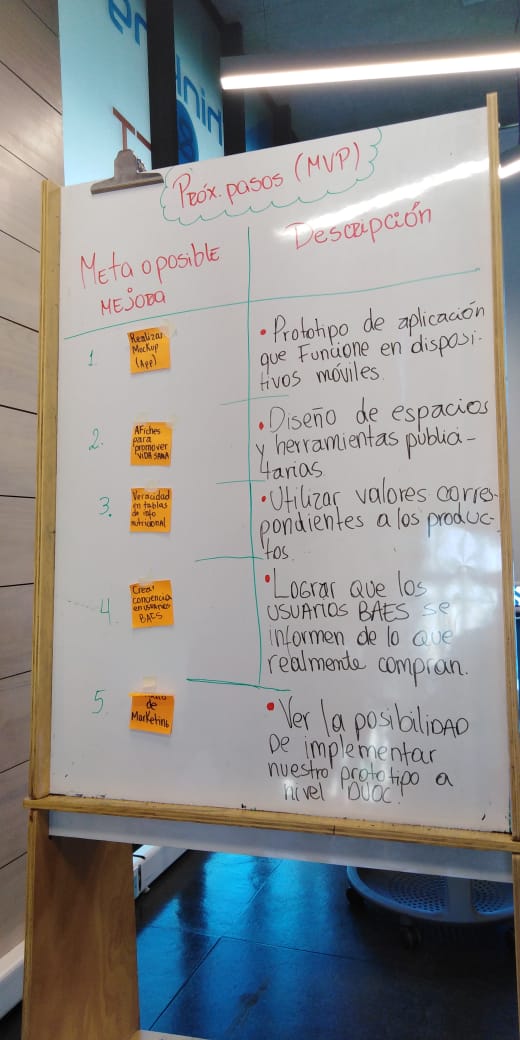 Próx. pasos (MVP)
Meta o posible
MEJORA
Descripción
1.
Realizar
Mockup
(App)
• Prototipo de aplicación
que Funcione en disposi-
tivos móviles.
2.
AFiches
para
promover
VIDA SANA
• Diseño de espacios
y herramientas publici-
tarias
3.
Veracidad
en tablas
de info
nutricional
• Utilizar valores corres-
pondientes a los produc-
tos.
4.
Crear
conciencia
en usuarios
BAES
• LOGRAR QUE los
USUARIOS BAES se
informen de lo que
realmente compran.
5.
de
Marketing
• Ver la posibiliDAD
De implementar
nuestro prototipo a
nivel DUOC.